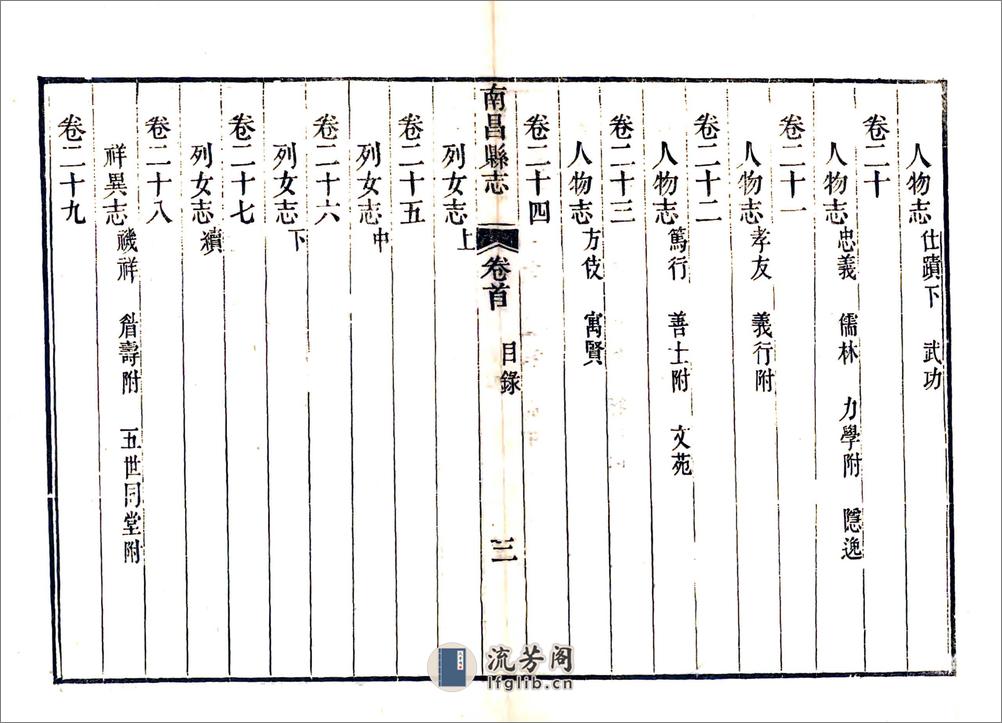 人物志 仕蹟下 武功
卷二十
人物志 忠義 儒林 力學附 隱逸
卷二十一
人物志 孝友 義行附
卷二十二
人物志 篤行 善士附 文苑
卷二十三
人物志 方伎 寓賢
卷二十四
南昌縣志 卷首 目錄 三
列女志上
卷二十五
列女志中
卷二十六
列女志下
卷二十七
列女志續
卷二十八
祥異志 禨祥 耆壽附 五世同堂附
卷二十九
流芳阁
lfglib.cn